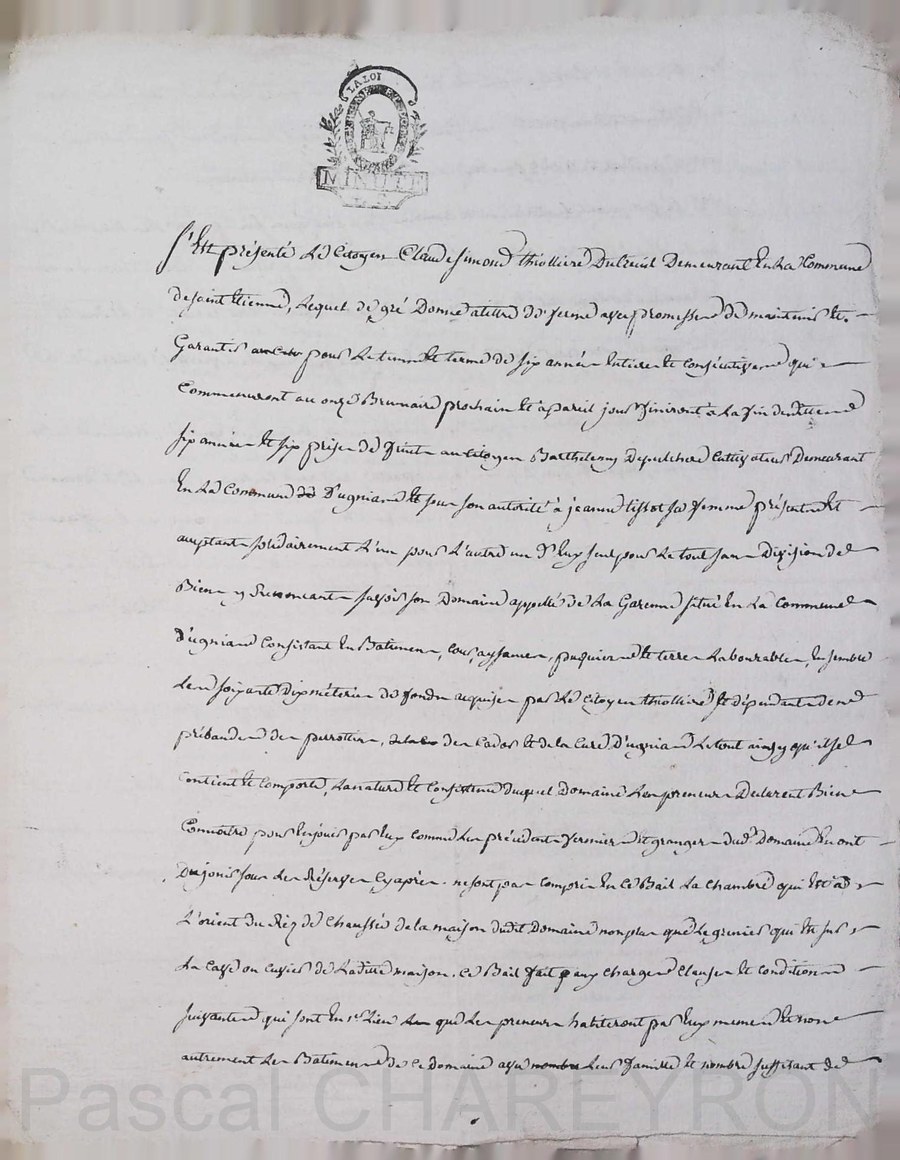 LA LOI
MINUTE
S'est présenté le Citoyen Claude Simond thiolliere Dutreuil Demeurant En la Commune
de saint Etienne, lequel de gré Donne atittre de ferme avec promesse de maintenir Et
Garantir pour le tems Et terme de six année Entiere Et Consécutive qui
Commenceront au onze Brumaire prochain Et a pareil jour finiront a la fin desdittes
six années Et six prise de fruit au Citoyen Barthelemy Cultivateur Demeurant
En la Commune D'ugniand Et sous son autorité à jeanne tissot sa femme présente Et
acceptant solidairement L'un pour L'autre un D'Eux seul pour le tout sans Division de
Biens y Renoncant sçavoir son Domaine appellé de La Garenne situé En la Commune
D'ugniand Consistant En Batimens, Cour, aysances, paquier Et terres Labourable, Ensemble
les soixante Dix méterées de fonds acquises par le Citoyen thiolliere Et dépendantes des
prébandes des perrottin, des Cados Et de la Cure D'ugniand le tout ainsy qu'il se
Contient Et Comporte, la nature Et Consistence duquel Domaine les preneurs Declarent Bien
Connoitre pour En jouir par Eux comme les précédents fermiers Et grangers dud. Domaine En ont
Du jouir sous les Réserves Cy après. ne sont pas Compris En ce Bail la chambre qui Est à
L'orient du Réz de Chaussée de la maison dudit Domaine non plus que le grenier qui Est sur
la Cave ou Cuvier de laditte maison. Ce Bail fait aux charges Clauses Et conditions
suivantes qui sont En 1er Lieu que les preneurs habiteront par Eux memes Et non
autrement les Batimens de ce domaine avec leur famille Et nombre suffisant de
Pascal CHAREYRON